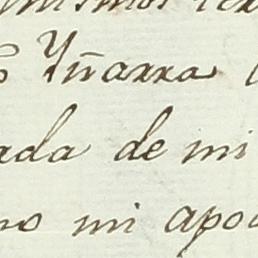 Yñarra
ada de mi
no mi apo